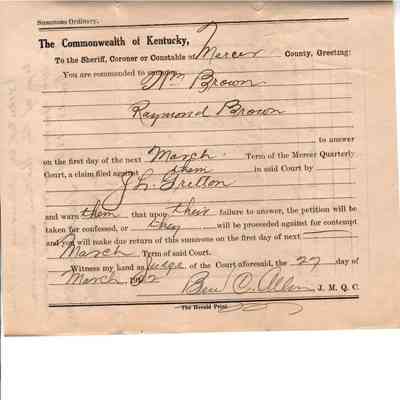 Summons Ordinary.
The Commonwealth of Kentucky,
To the Sheriff, Coroner or Constable of Mercer County, Greeting:
You are commanded to summon Wm Brown
Raymond Brown
to answer
on the first day of the next March Term of the Mercer Quarterly
Court, a claim filed against them in said Court by
J. L. Gritton
and warn them that upon their failure to answer, the petition will be
taken for confessed, or they will be proceeded against for contempt
and you will make due return of this summons on the first day of next
March Term of said Court.
Witness my hand as Judge of the Court aforesaid, the 27 day of
March 1912 Ben C. Allen J. M. Q. C.
The Herald Print.